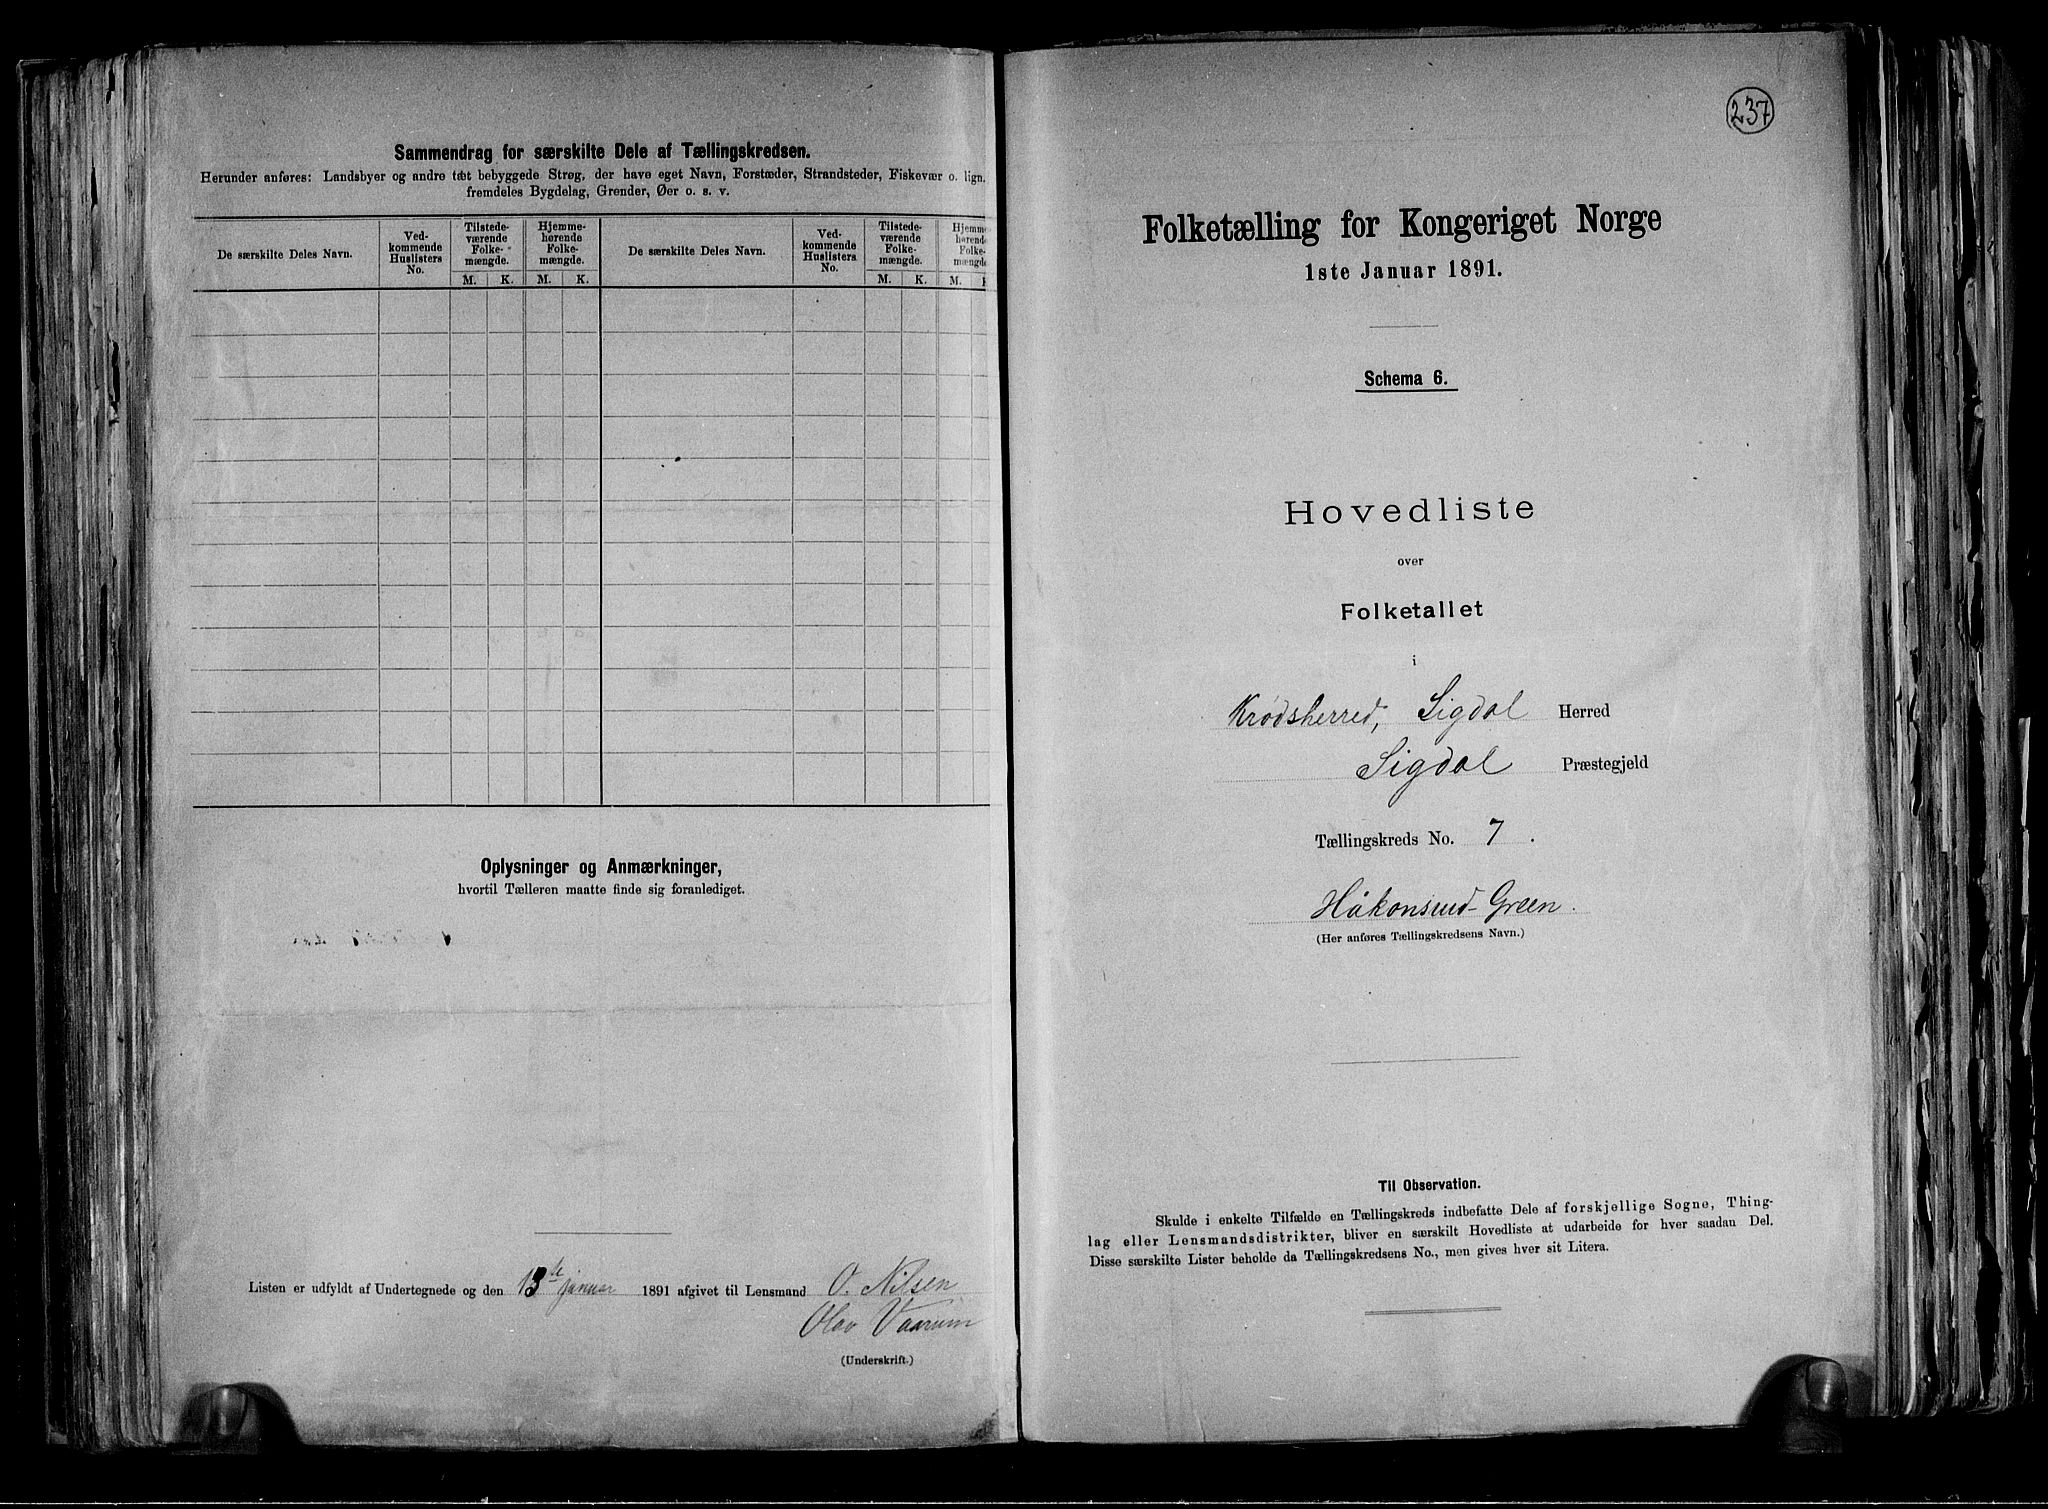 Sammendrag for særskilte Dele af Tællingskredsen.
Herunder anføres: Landsbyer og andre tæt bebyggede Strøg, der have eget Navn, Forstæder, Strandsteder, Fiskevær o. lign.
fremdeles Bygdelag, Grender, Øer o. s. v.
De særskilte Deles Navn.
Ved-
kommende
Huslisters
No.
Tilstede-
værende
Folke-
mængde.
Hjemme-
hørende
Folke-
mængde.
M. K. M. K.
De særskilte Deles Navn.
Ved-
kommende
Huslisters
No.
Tilstede-
værende
Folke-
mængde.
Hjemme
hørende
Folke-
mængde
M. K. M. K
Oplysninger og Anmærkninger,
hvortil Tælleren maatte finde sig foranlediget.
Listen er udfyldt af Undertegnede og den 13de januar 1891 afgivet til Lensmand O. Nilsen
Olav Vaarum
(Underskrift.)
237
Folketælling for Kongeriget Norge
1ste Januar 1891.
Schema 6.
Hovedliste
over
Folketallet
i
Krødsherred, Sigdal Herred
Sigdal Præstegjeld
Tællingskreds No. 7.
Håkonsund-Green.
(Her anføres Tællingskredsens Navn.)
Til Observation.
Skulde i enkelte Tilfælde en Tællingskreds indbefatte Dele af forskjellige Sogne, Thing-
lag eller Lensmandsdistrikter, bliver en særskilt Hovedliste at udarbeide for hver saadan Del.
Disse særskilte Lister beholde da Tællingskredsens No., men gives hver sit Litera.